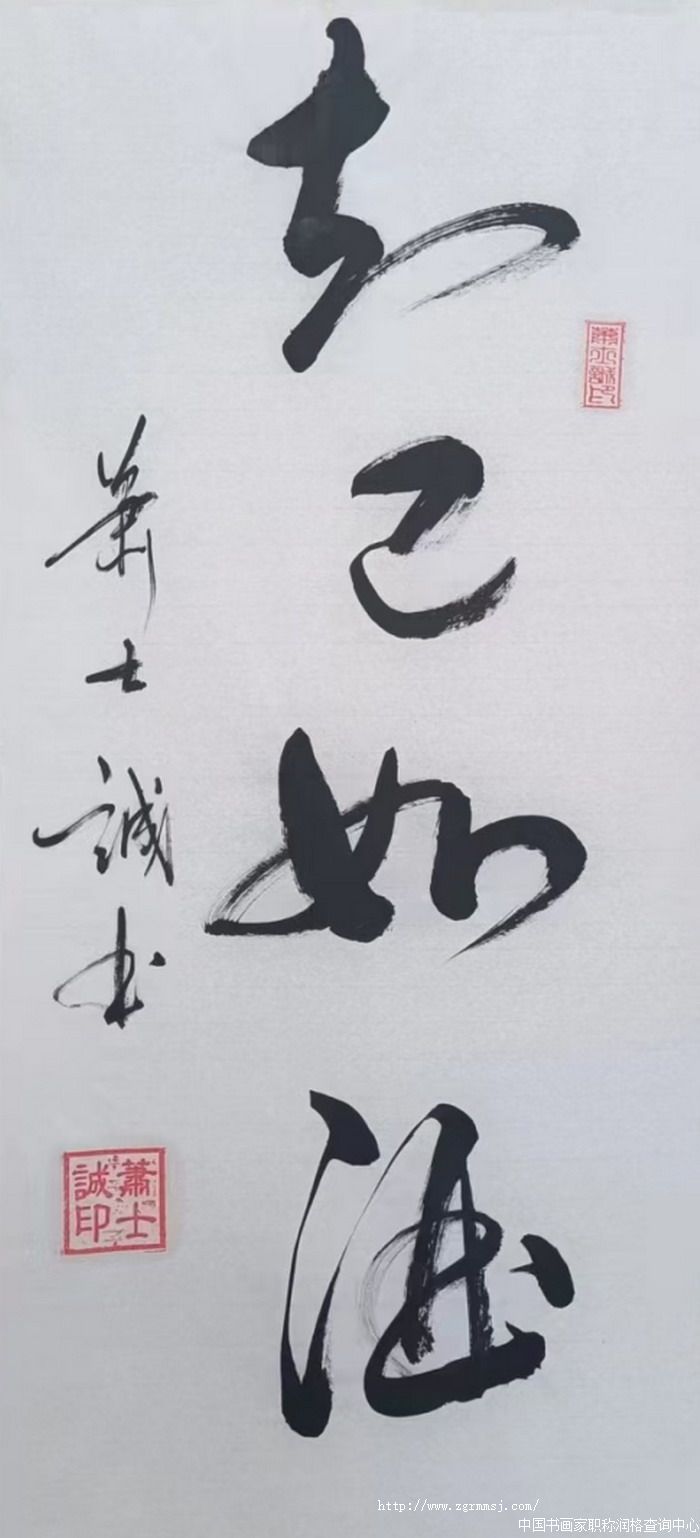 知己如
蕭士誠印
蕭士誠书
蕭士誠印
http://www.zgrmmsj.com/
中国书画家职称润格查询中心